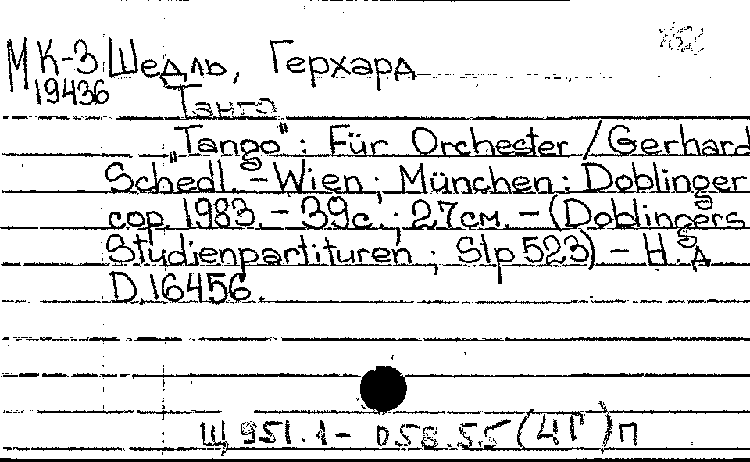 МК-3 Шедль, Герхард
19436
Танго
„Tango“ : Für Orchester / Gerhard
Schedl. – Wien ; München : Doblinger
cop. 1983. – 39 с. ; 27 см. – (Doblingers
Studienpartituren ; Stp 523) – Н. д.
D. 16456.
Щ 951.1 – 058.55 (4Г) п